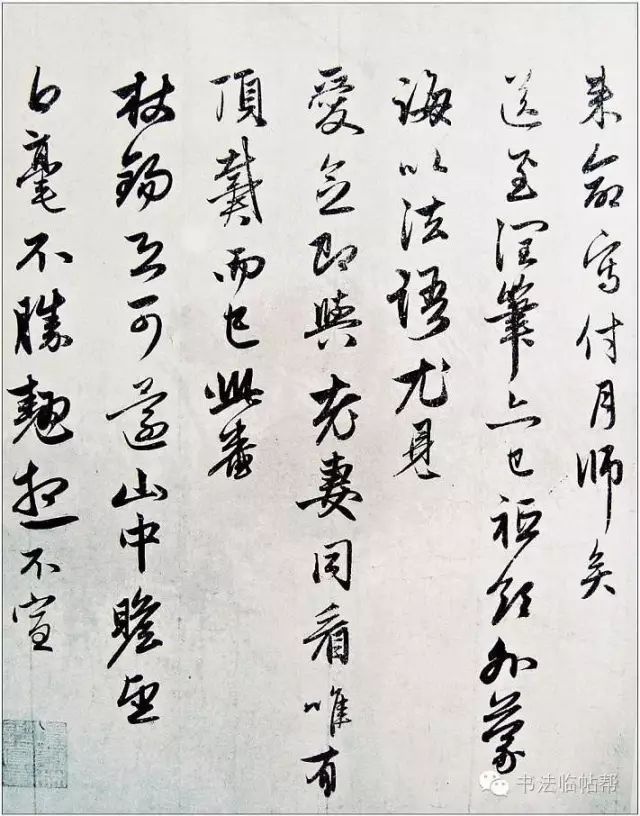 來命寫付月師矣
送至潤筆亦已祗領外蒙
誨以法語尤見
愛念即與老妻同看唯有
頂戴而已此番
杖錫可還山中瞻望
白毫不勝翹想不宣
书法临帖帮